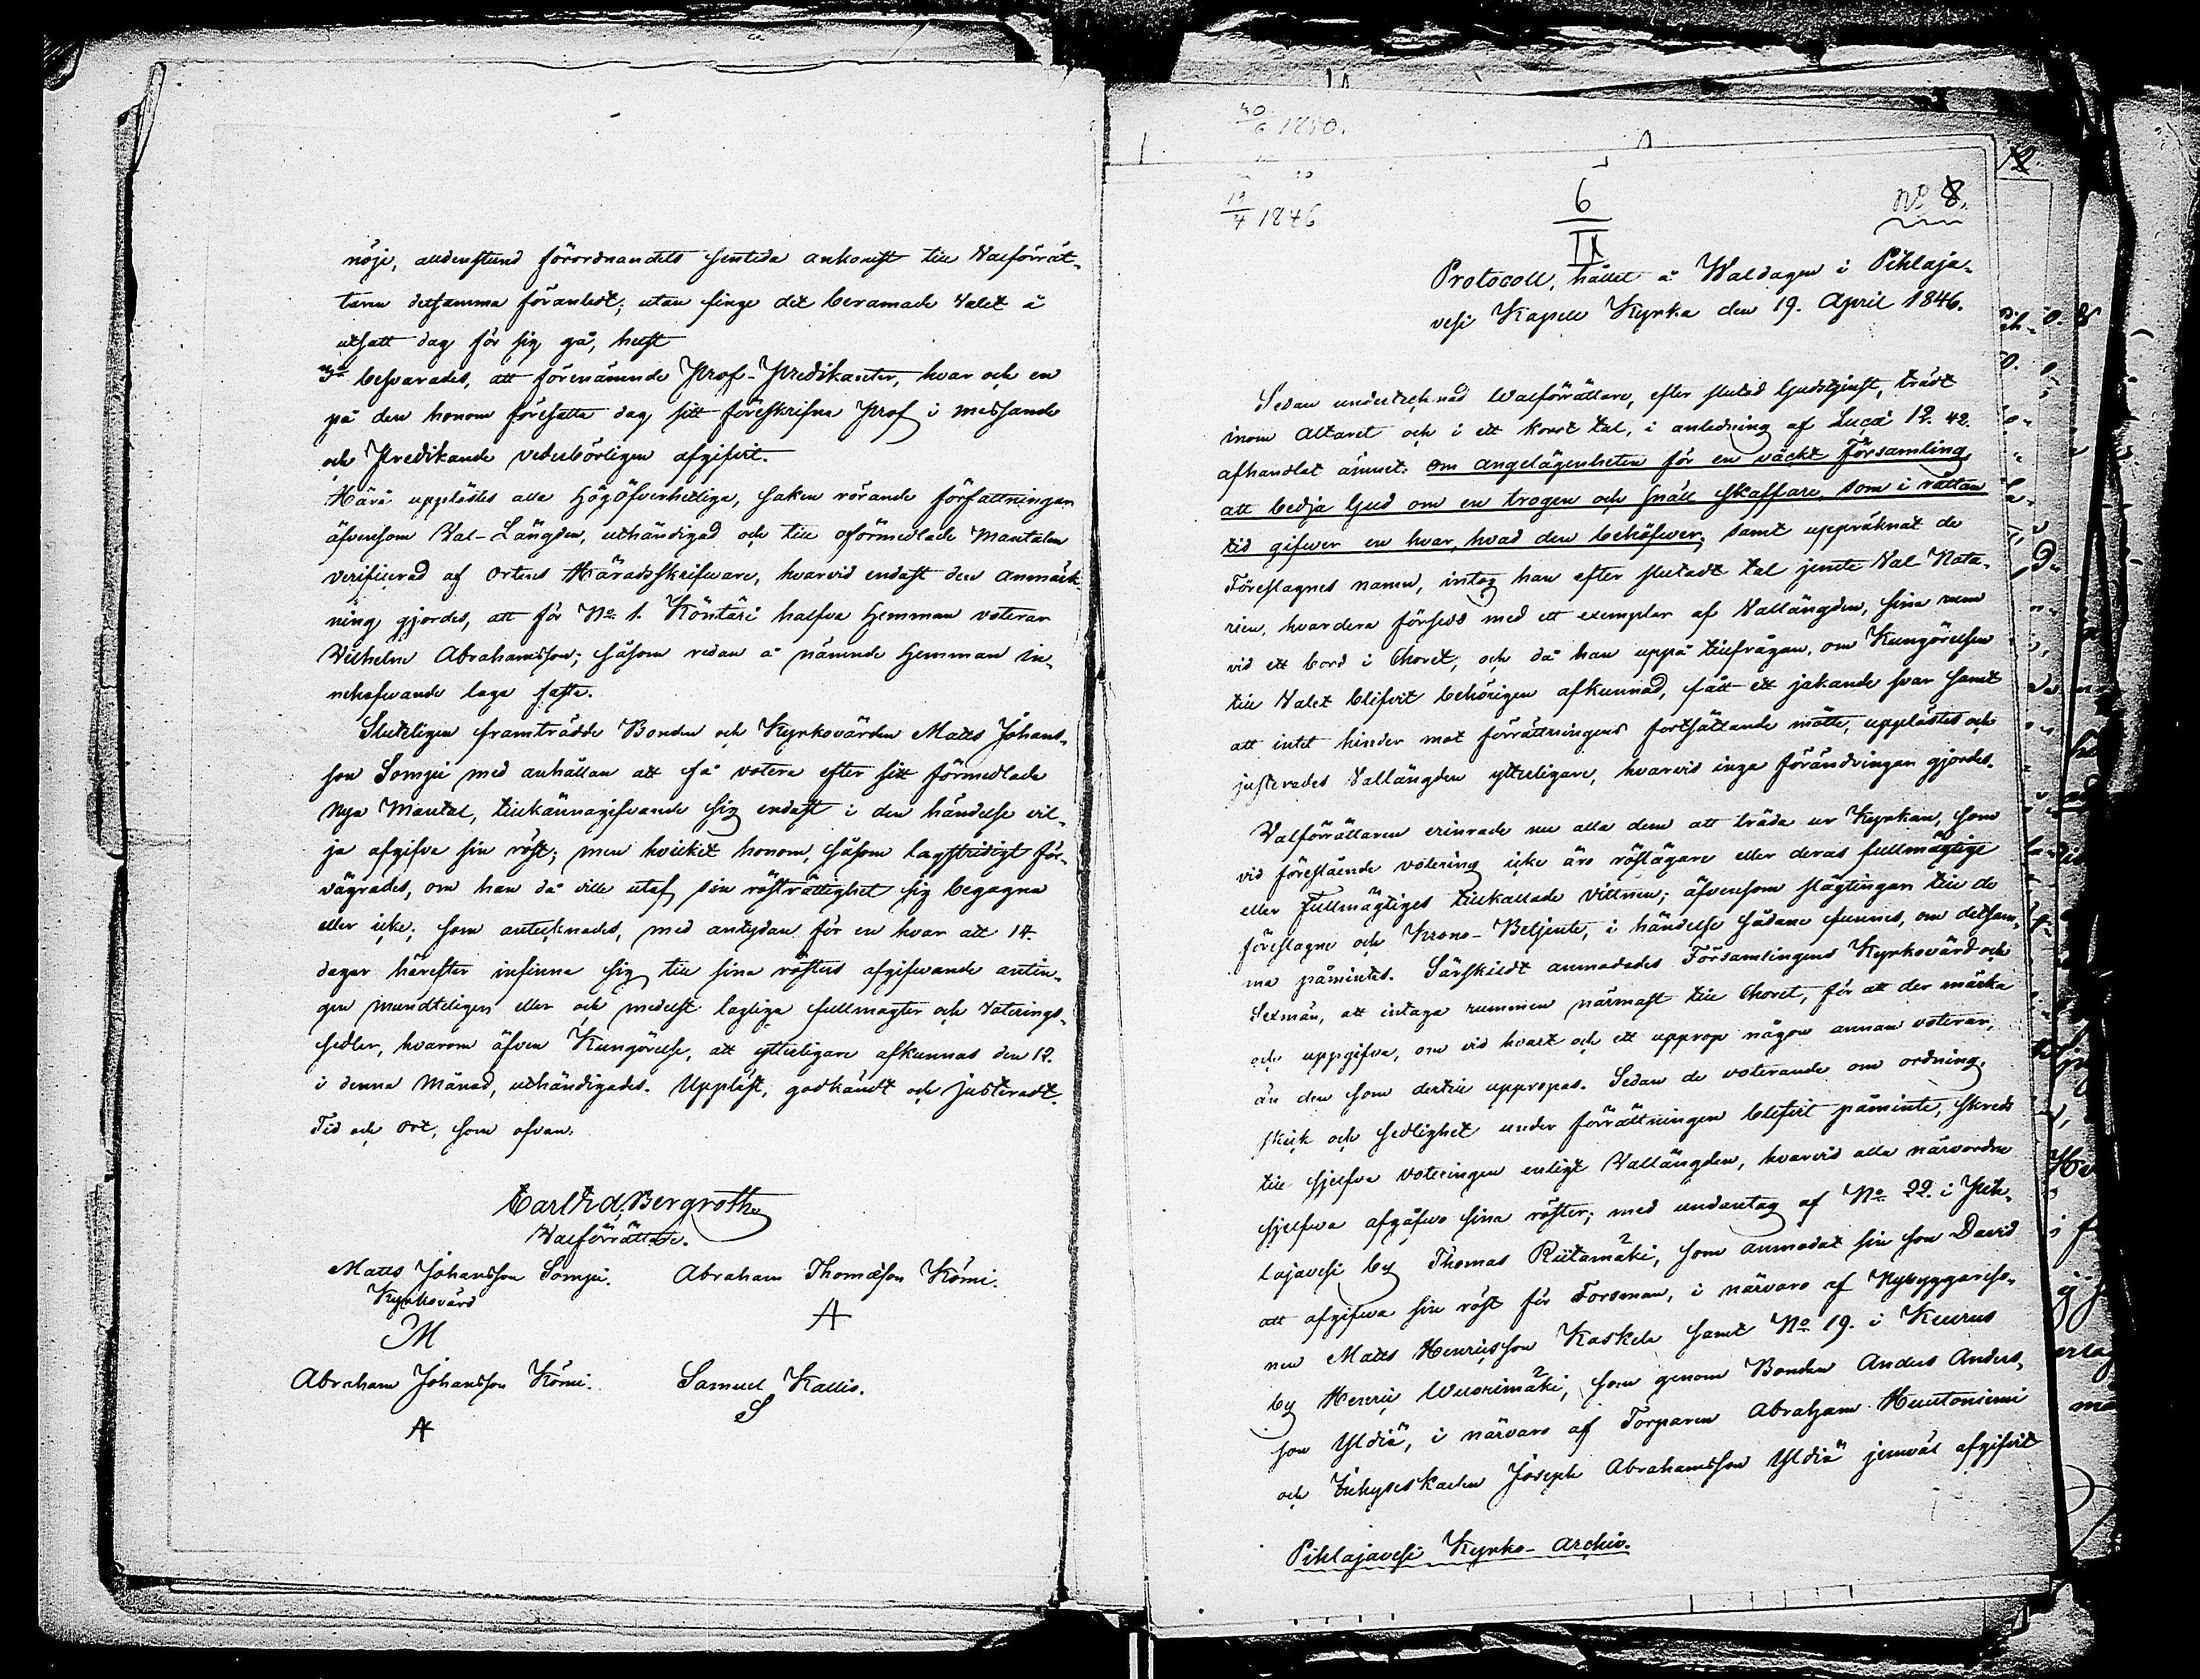 nöje, alldenstund förordnandets sentida ankomst till Valförrät-
taren detsamma föranledt; utan finge det beramade Valet å
utsatt dag för sig gå, helst
3:o besvarades, att förenämnde Prof-Predikanter, hvar och en
på den honom föresatta dag sitt föreskrifna Prof i messande
och Predikande vederbörligen afgifvit.
Härå upplästes alla Högöfverhetliga, saken rörande författningar
äfvensom Val-Längden, uthändigad och till oförmedlade Mantalen
verificerad af Ortens Häradsskrifvare, hvarvid endast den anmärk-
ning gjordes, att för No 1. Köntäri halfva Hemman voterar
Vilhelm Abrahamsson; såsom redan å nämnde Hemman in-
nehafvande laga fasta.
Slutligen framträdde Bonden och Kyrkovärden Matts Johans-
son Sompi med anhållan att få votera efter sitt förmedlade
nya Mantal, tillkännagifvande sig endast i den händelse vil-
ja afgifva sin röst; men hvilket honom, såsom lagstridigt för-
vägrades, om han då ville utaf sin rösträttighet sig begagna
eller icke; som antecknades, med antydan för en hvar att 14.
dagar härefter infinna sig till sina rösters afgifvande antin-
gen mundteligen eller och medelst lagliga fullmagter och Voterings-
sedlar, hvarom äfven Kungörelse, att ytterligare afkunnas den 12.
i denna Månad, uthändigades. Uppläst, godkändt och justeradt.
Tid och Ort, som ofvan.
Carl Frd. Bergroth
Valförrättare.
Matts Johansson Sompi. Abraham Thomasson Kömi.
Kyrkovärd
M A
Abraham Johansson Kömi. Samuel Kallio.
A S
30/6 1840.
19/4 1846
6
IX
No 8.
Protocoll, hållet å Waldagen i Pihlaja-
vesi Kapell Kyrka den 19. April 1846.
Sedan undertecknad Walförrättare, efter slutad Gudstjenst, trädt
inom Altaret och i ett kort tal, i anledning af Lucä 12. 42.
afhandlat ämnet: om angelägenheten för en väckt Församling,
att bedja Gud om en trogen och snäll skaffare, som i rättan
tid gifwer en hvar, hvad den behöfwer; samt uppräknat de
Föreslagnes namn, intog han efter slutadt tal jemte Val Nota-
rien, hvardera försedd med ett exemplar af Vallängden, sina rum
vid ett bord i Choret, och då han uppå tillfrågan, om Kungörelsen
till Valet blifvit behörigen afkunnad, fått ett jakande svar samt
att intet hinder mot förrättningens fortsättande mötte, upplästes och
justerades Vallängden ytterligare, hvarvid inga förändringar gjordes.
Valförrättaren erinrade nu alla dem att träda ur Kyrkan, som
vid föreslående votering icke äro röstägare eller deras fullmägtige
eller Fullmägtiges tillkallade vittnen; äfvensom slägtingar till de
föreslagne och Krono-Betjente, i händelse sådane funnes, om detsam-
ma påmintes. Särskildt anmodades Församlingens Kyrkovärd och
Sexmän, att intaga rummen närmast till Choret, för att der märka
och uppgifva, om vid hvart och ett upprop någon annan voterar,
än den som dertill uppropas. Sedan de voterande om ordning,
skick och sedlighet under förrättningen blifvit påminte, skreds
till sjelfva voteringen enligt Vallängden, hvarvid alla närvarande
sjelfva afgåfvo sina röster; med undantag af No 22. i Pih-
lajavesi by Thomas Riitamäki, som anmodat sin son David
att afgifva sin röst för Forsman, i närvaro af Nybyggareso-
nen Matts Henricsson Kaskela samt No 19. i Keurus
by Henric Wuorimäki, som genom Bonden Anders Anders-
son Yldiä, i närvaro af Torparen Abraham Huutoniemi
och Inhyseskarlen Joseph Abrahamsson Yldiä jemväl afgifvit
Pihlajavesi Kyrko-Archiv.